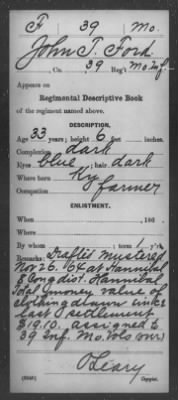 F 39 Mo.
John T. Ford
, Co. , 39 Reg't Mo. Inf.
Appears on
Regimental Descriptive Book
of the regiment named above.
DESCRIPTION.
Age 33 years; height 6 feet inches.
Complexion dark
Eyes blue; hair dark
Where born Ky
Occupation farmer
ENLISTMENT.
When , 186 .
Where
By whom ; term 1 y'rs.
Remarks: Draftis mustered
Nov 26. '64 at Hannibal
6 Cong dist. Hannibal
Total money value of
clothing drawn since
last settlement
$19.10. assigned to
39 Inf. Mo. Vols
O'Leary
Copyist.